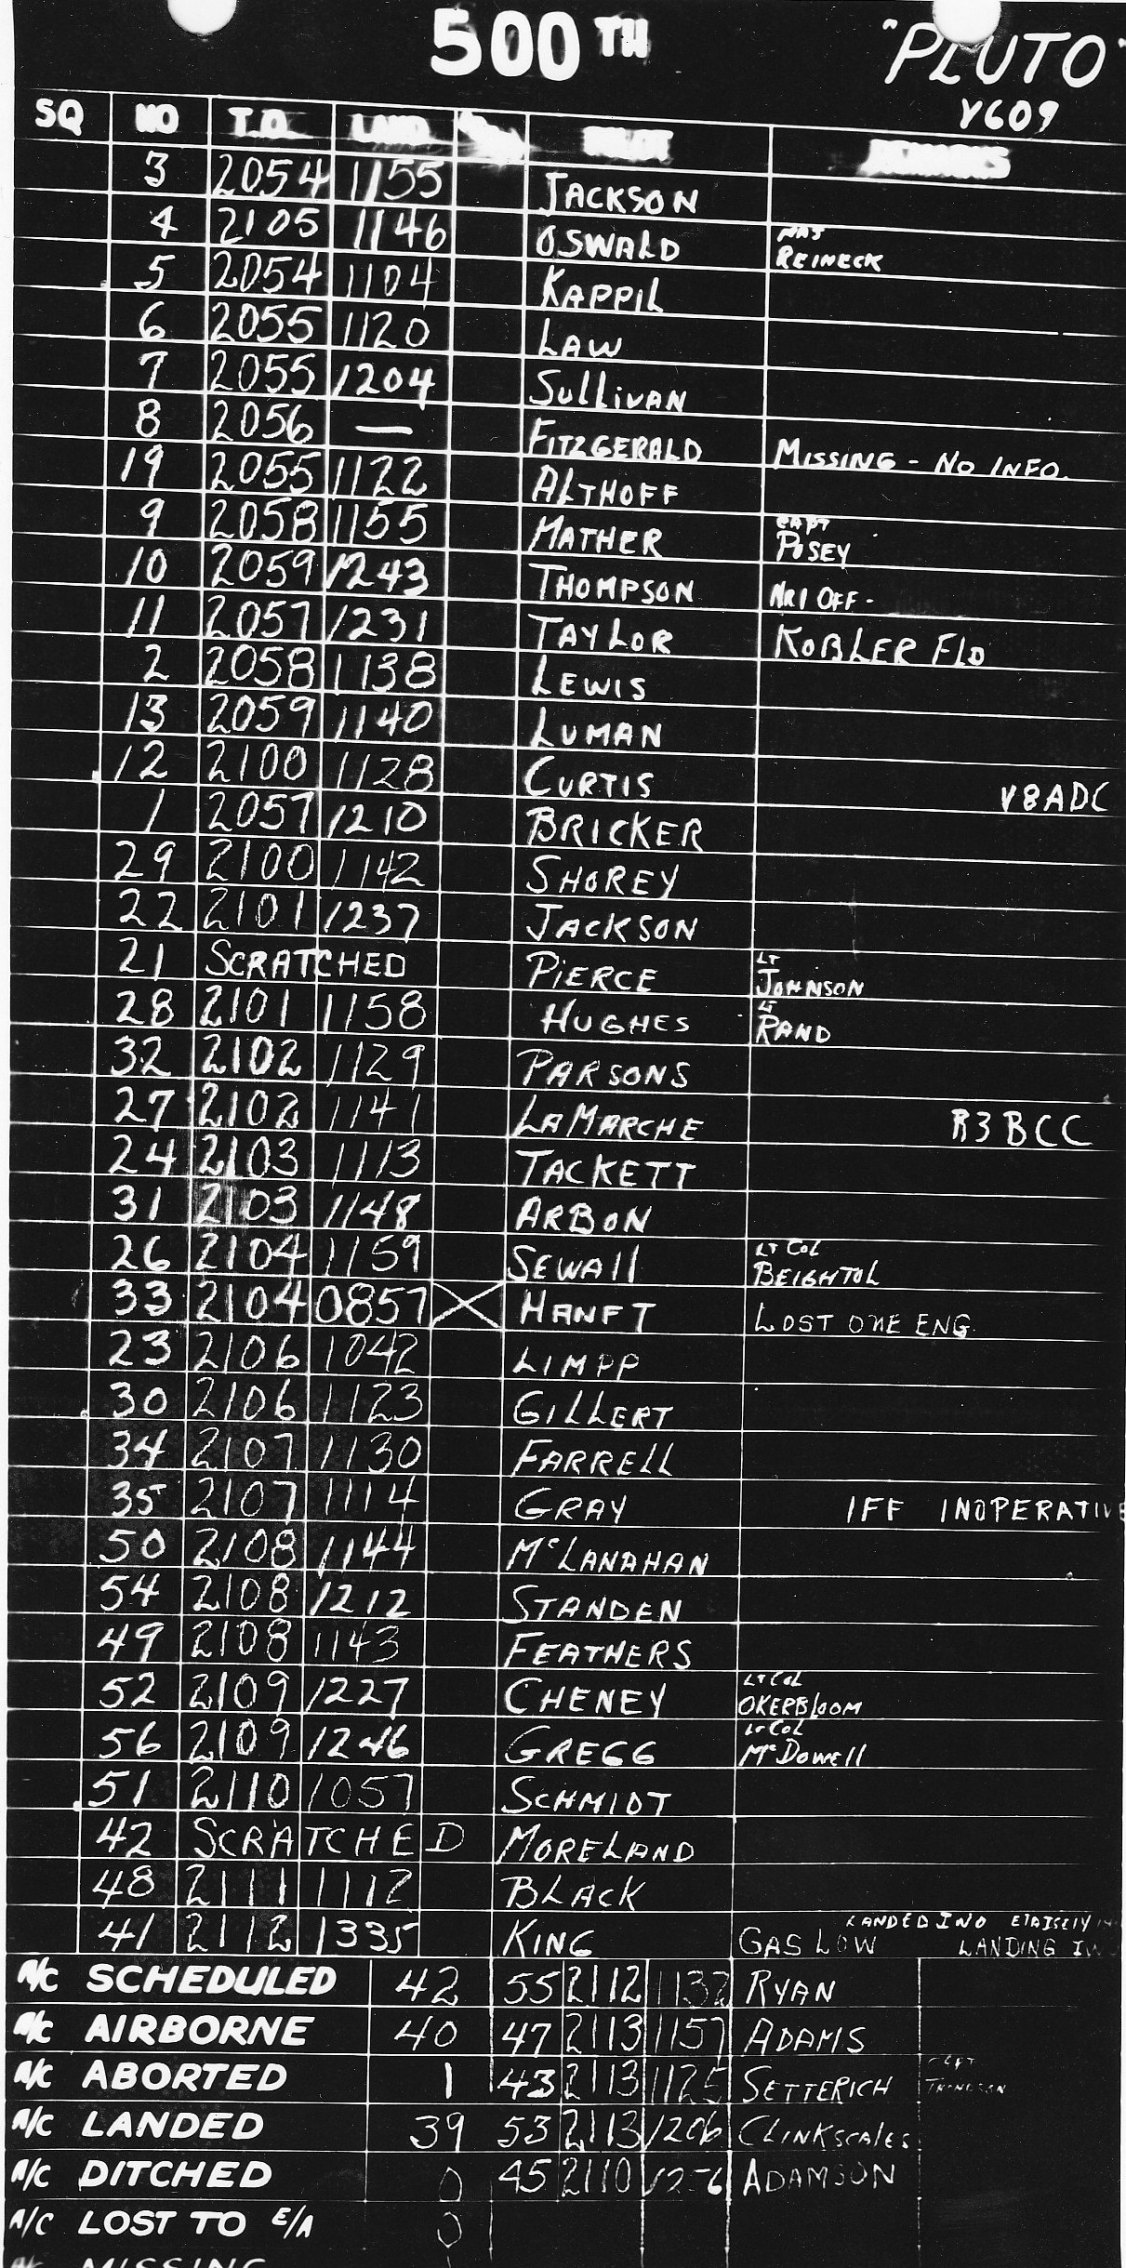 500TH "PLUTO"
V609
SQ NO T.O. LAND PILOT REMARKS
3 2054 1155 JACKSON
4 2105 1146 OSWALD MAJ REINECK
5 2054 1104 KAPPIL
6 2055 1120 LAW
7 2055 1204 SULLIVAN
8 2056 — FITZGERALD MISSING - NO INFO.
19 2055 1122 ALTHOFF
9 2058 1155 MATHER CAPT POSEY
10 2059 1243 THOMPSON NR1 OFF-
11 2057 1231 TAYLOR KOBLER FLD
2 2058 1138 LEWIS
13 2059 1140 LUMAN
12 2100 1128 CURTIS V8ADC
1 2057 1210 BRICKER
29 2100 1142 SHOREY
22 2101 1237 JACKSON
21 SCRATCHED PIERCE LT JOHNSON
28 2101 1158 HUGHES LT RAND
32 2102 1129 PARSONS
27 2102 1141 LAMARCHE R3BCC
24 2103 1113 TACKETT
31 2103 1148 ARBON
26 2104 1159 SEWAll LT COL BEIGHTOL
33 2104 0857 X HANFT LOST ONE ENG.
23 2106 1042 LIMPP
30 2106 1123 GILLERT
34 2107 1130 FARRELL
35 2107 1114 GRAY IFF INOPERATIVE
50 2108 1144 McLANAHAN
54 2108 1212 STANDEN
49 2108 1143 FEATHERS
52 2109 1227 CHENEY LT COL OKERBLOOM
56 2109 1246 GREGG LT COL McDOWEll
51 2110 1057 SCHMIDT
42 SCRATCHED MORELAND
48 2111 1112 BLACK
41 2112 1335 KING GAS LOW LANDED IWO LANDING
A/C SCHEDULED 42 55 2112 1132 RYAN
A/C AIRBORNE 40 47 2113 1157 ADAMS
A/C ABORTED 1 43 2113 1125 SETTERICH CAPT THOMPSON
A/C LANDED 39 53 2113 1206 CLINKSCALES
A/C DITCHED 0 45 2110 1256 ADAMSON
A/C LOST TO E/A 0
A/C MISSING